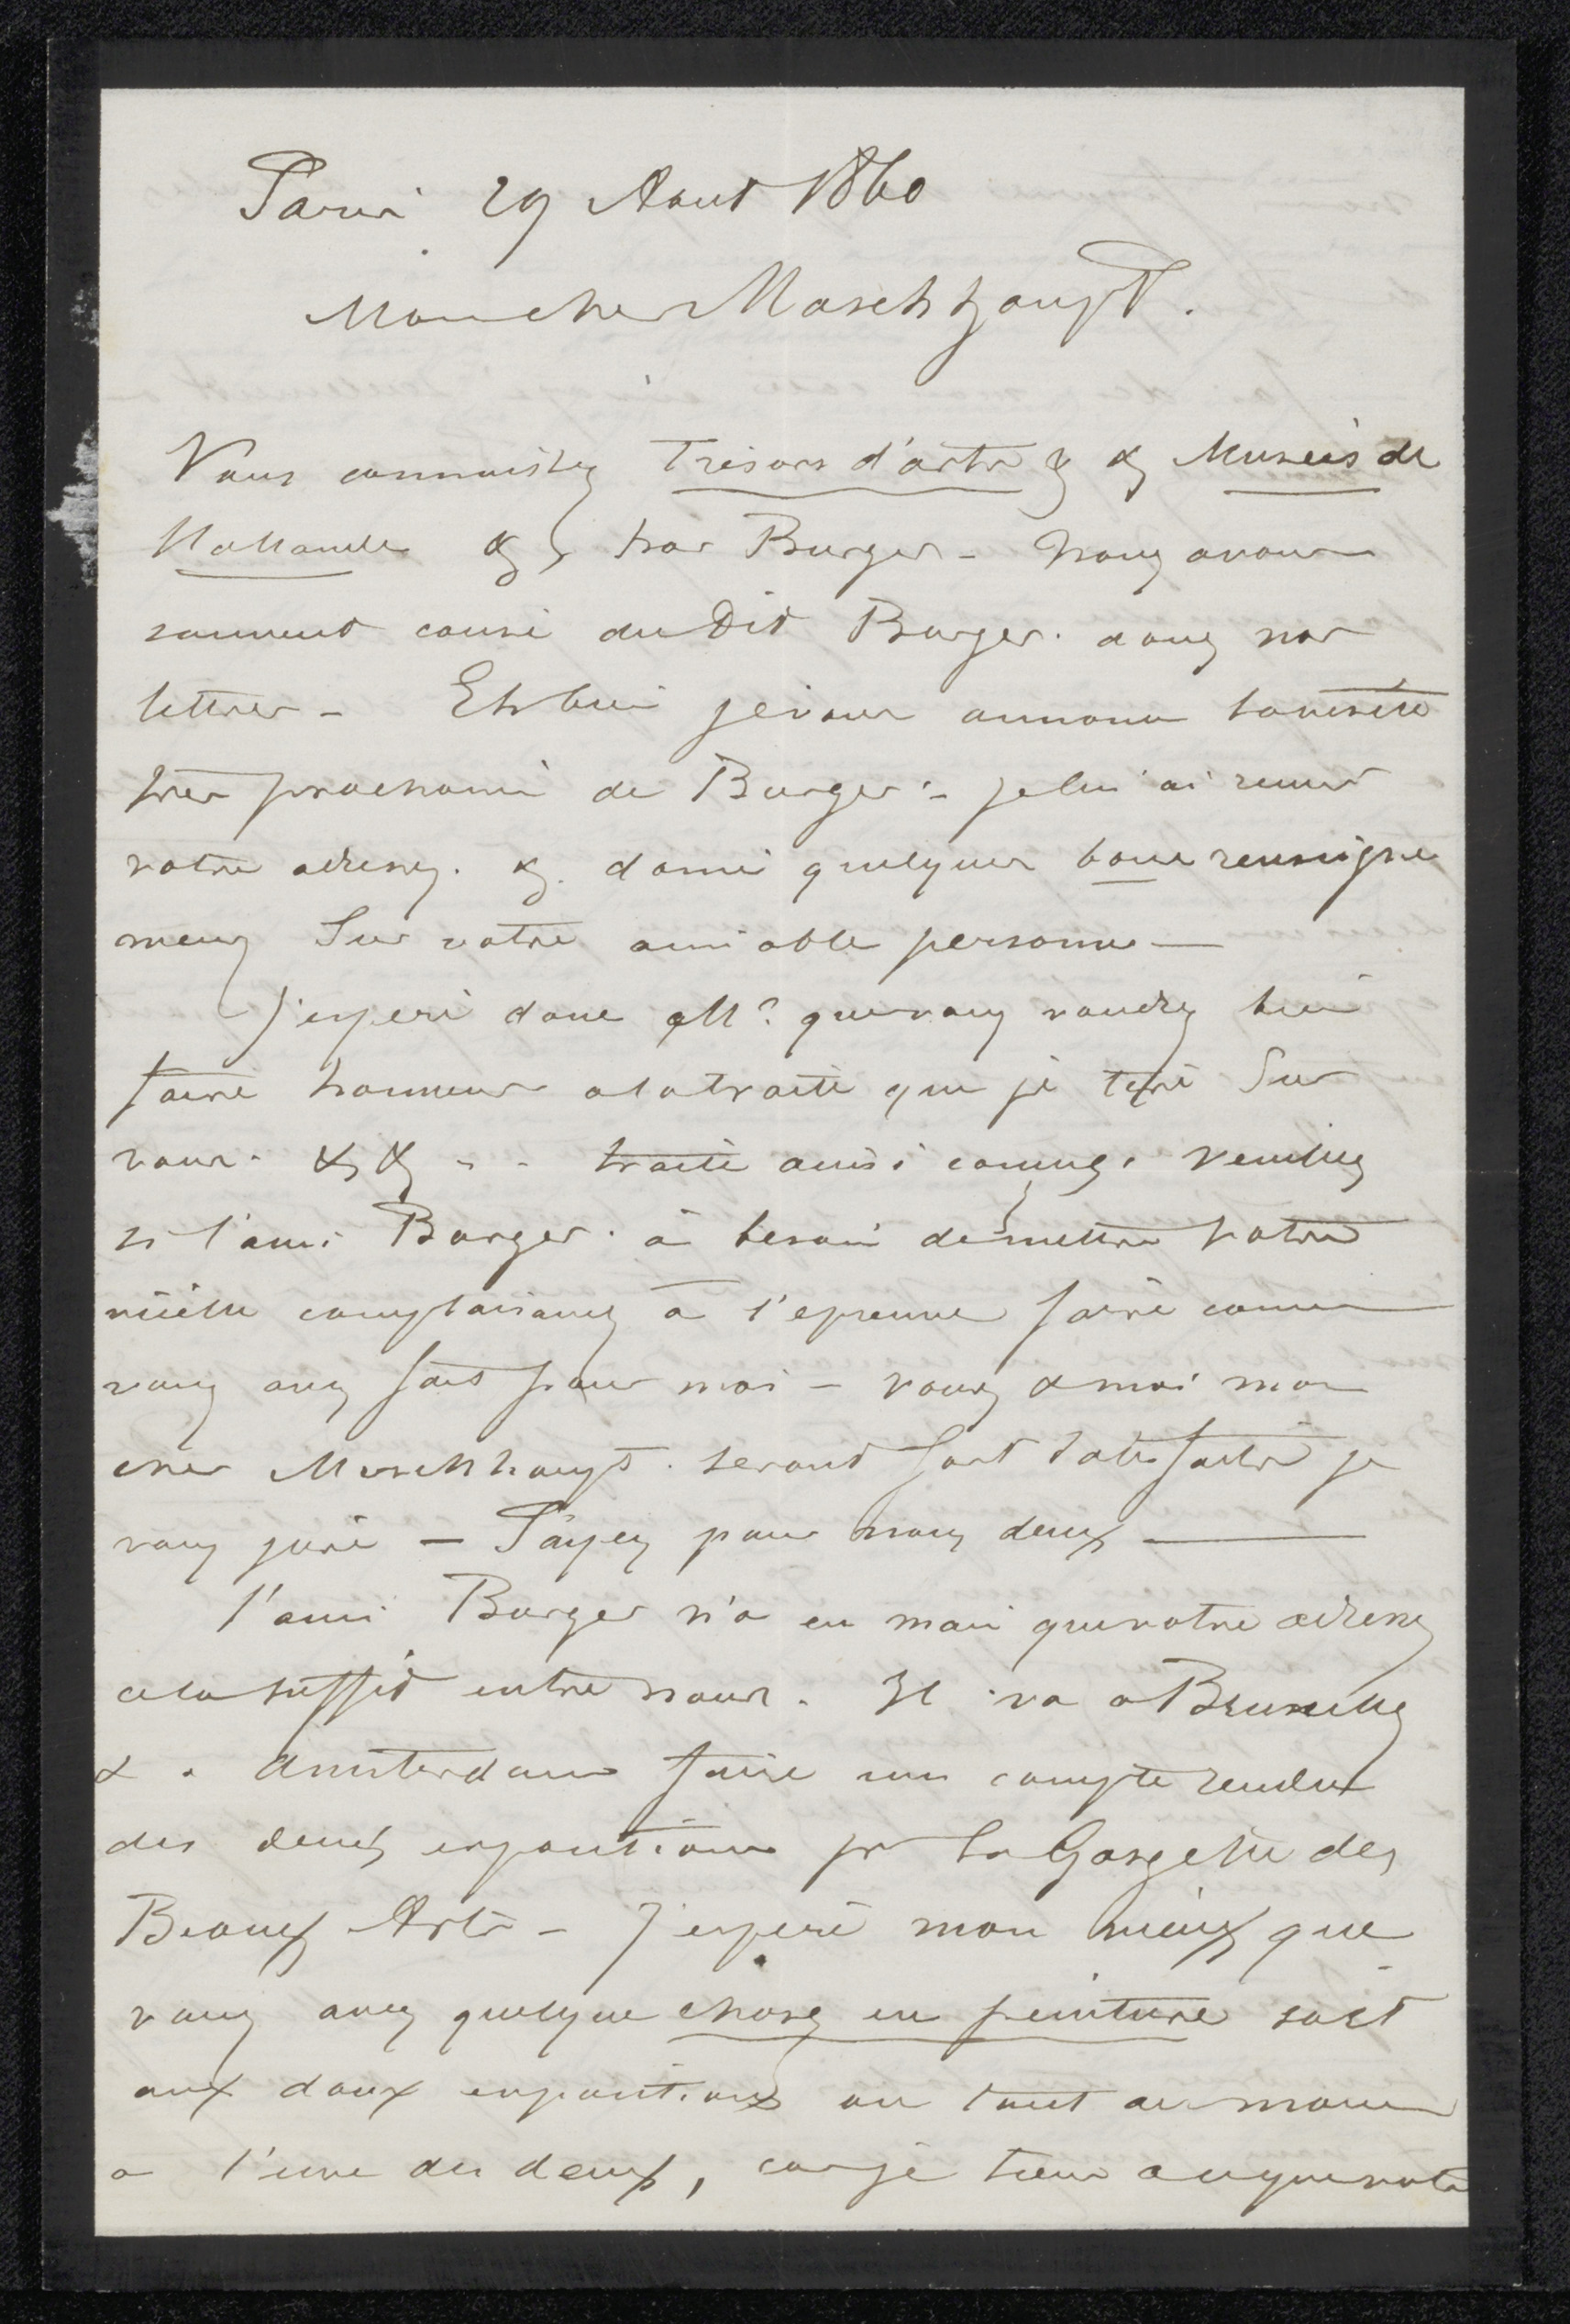 Paris 29 Aout 1860
Mon cher Maschhaupt.
Vous connaissez Trésors d'arts & & Musées de
Hollande & & par Burger - Nous avons
souvent causé du dit Burger. dans nos
lettres - Eh bien je vous annonce la visite
très prochaine de Burger - je lui ai remis
votre adresse. & donné quelques bons renseigne
mens sur votre aimable personne -
J'espere donc que vous voudrez bien
faire honneur a la traite que je tire sur
vous. & & - - traite ainsi conçue. Veuillez
si l'ami Burger. à besoin de mettre votre
vieille complaisance à l'epreuve faire comme
vous avez fait pour moi - vous & moi mon
cher Maschhaupt. seront fort satisfaits je
vous jure - Payez pour nous deux -
l'ami Burger n'a en main que votre adresse
cela suffit entre nous. Il va a Bruxelles
& a Amsterdam faire un compte rendu
des deux expositions pr la Gazette des
Beaux Arts - J'espere mon vieux que
vous avez quelque chose en peinture soit
aux deux expositions ou tout au moins
a l'une des deux, car je tiens a ce que votre